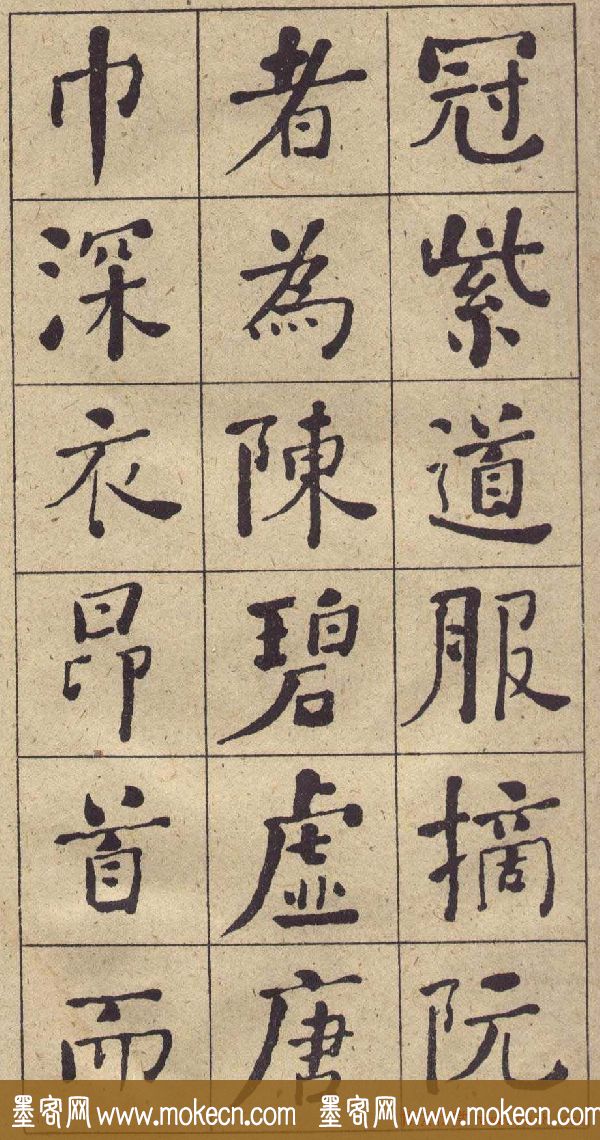 冠紫道服摘阮
者為陳碧虛唐
巾深衣昂首而
墨客网 www.mokecn.com 墨客网 www.mokecn.com